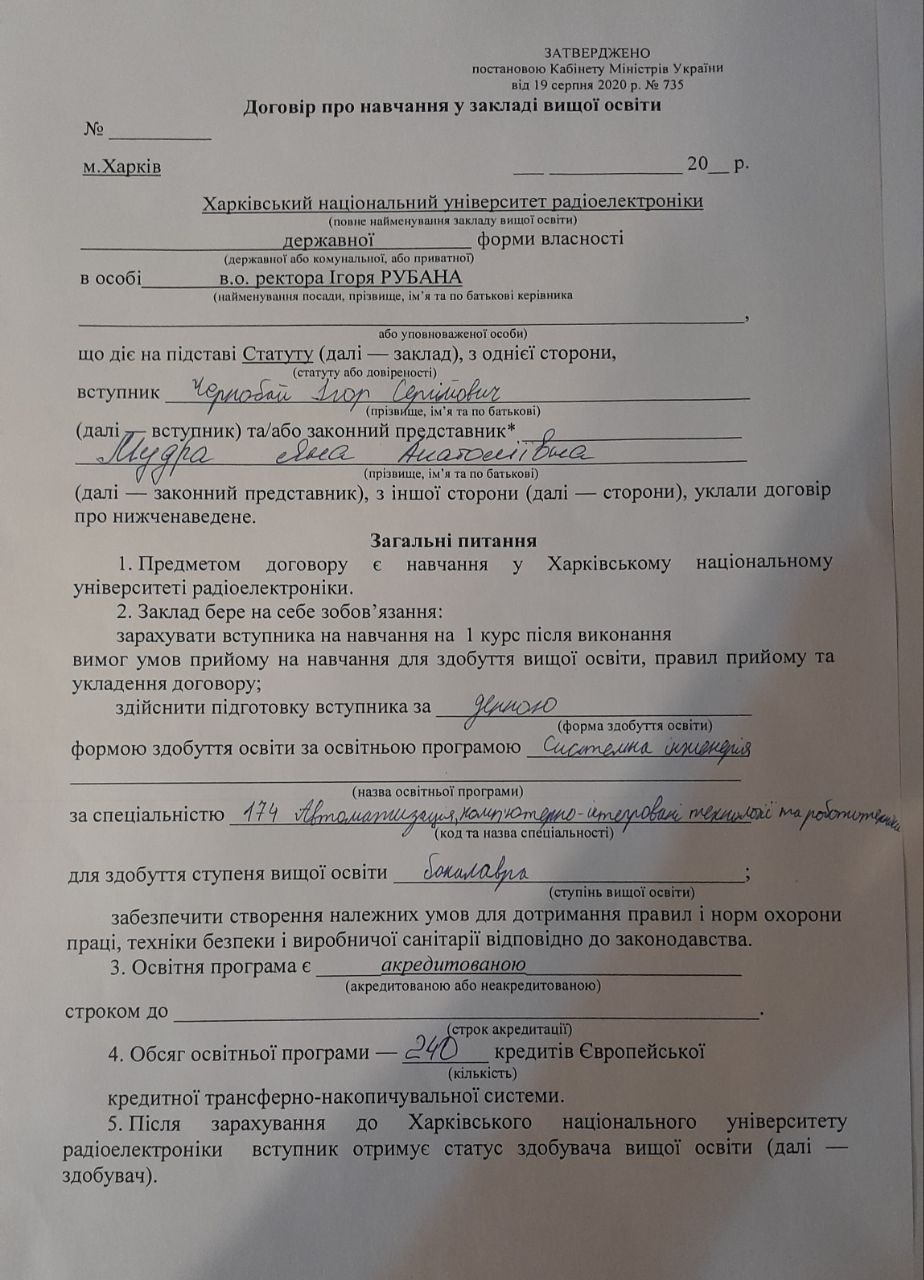 ЗАТВЕРДЖЕНО
постановою Кабінету Міністрів України
від 19 серпня 2020 р. № 735
Договір про навчання у закладі вищої освіти
№ ___________
м.Харків ___ ______________ 20__ р.
Харківський національний університет радіоелектроніки
(повне найменування закладу вищої освіти)
державної форми власності
(державної або комунальної, або приватної)
в особі в.о. ректора Ігоря РУБАНА
(найменування посади, прізвище, ім’я та по батькові керівника
,
або уповноваженої особи)
що діє на підставі Статуту (далі — заклад), з однієї сторони,
(статуту або довіреності)
вступник Чернобай Ігор Сергійович
(прізвище, ім’я та по батькові)
(далі — вступник) та/або законний представник*
Мудра Яна Анатоліївна
(прізвище, ім’я та по батькові)
(далі — законний представник), з іншої сторони (далі — сторони), уклали договір
про нижченаведене.
Загальні питання
1. Предметом договору є навчання у Харківському національному
університеті радіоелектроніки.
2. Заклад бере на себе зобов’язання:
зарахувати вступника на навчання на 1 курс після виконання
вимог умов прийому на навчання для здобуття вищої освіти, правил прийому та
укладення договору;
здійснити підготовку вступника за денною
(форма здобуття освіти)
формою здобуття освіти за освітньою програмою Системна інженерія
(назва освітньої програми)
за спеціальністю 174 Автоматизація, комп'ютерно-інтегровані технології та робототехніка
(код та назва спеціальності)
для здобуття ступеня вищої освіти бакалавра ;
(ступінь вищої освіти)
забезпечити створення належних умов для дотримання правил і норм охорони
праці, техніки безпеки і виробничої санітарії відповідно до законодавства.
3. Освітня програма є акредитованою
(акредитованою або неакредитованою)
строком до .
(строк акредитації)
4. Обсяг освітньої програми — 240 кредитів Європейської
(кількість)
кредитної трансферно-накопичувальної системи.
5. Після зарахування до Харківського національного університету
радіоелектроніки вступник отримує статус здобувача вищої освіти (далі —
здобувач).